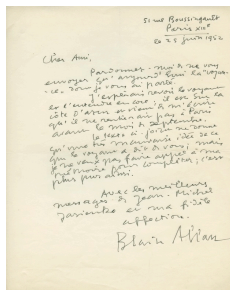 51 rue Boussingault
Paris XIIIe
le 25 juin 1952
Cher Ami,
Pardonnez-moi de ne vous
envoyer qu'aujourd'hui
dont je vous ai parlé.
J'espérais revoir le voyant
et l'entendre encore, il est sur la
côte d'Azur et vient de m'écrire
qu'il ne rentrerait pas à Paris
avant le mois de septembre.
Le texte ci-joint ne donne
qu'une très mauvaise idée de ce
que le voyant a dit de vous, mais
je ne veux pas faire appel à ma
mémoire pour compléter; c'est
plus pur ainsi.
Avec les meilleurs
messages de Jean-Michel
et ma fidèle
affection.